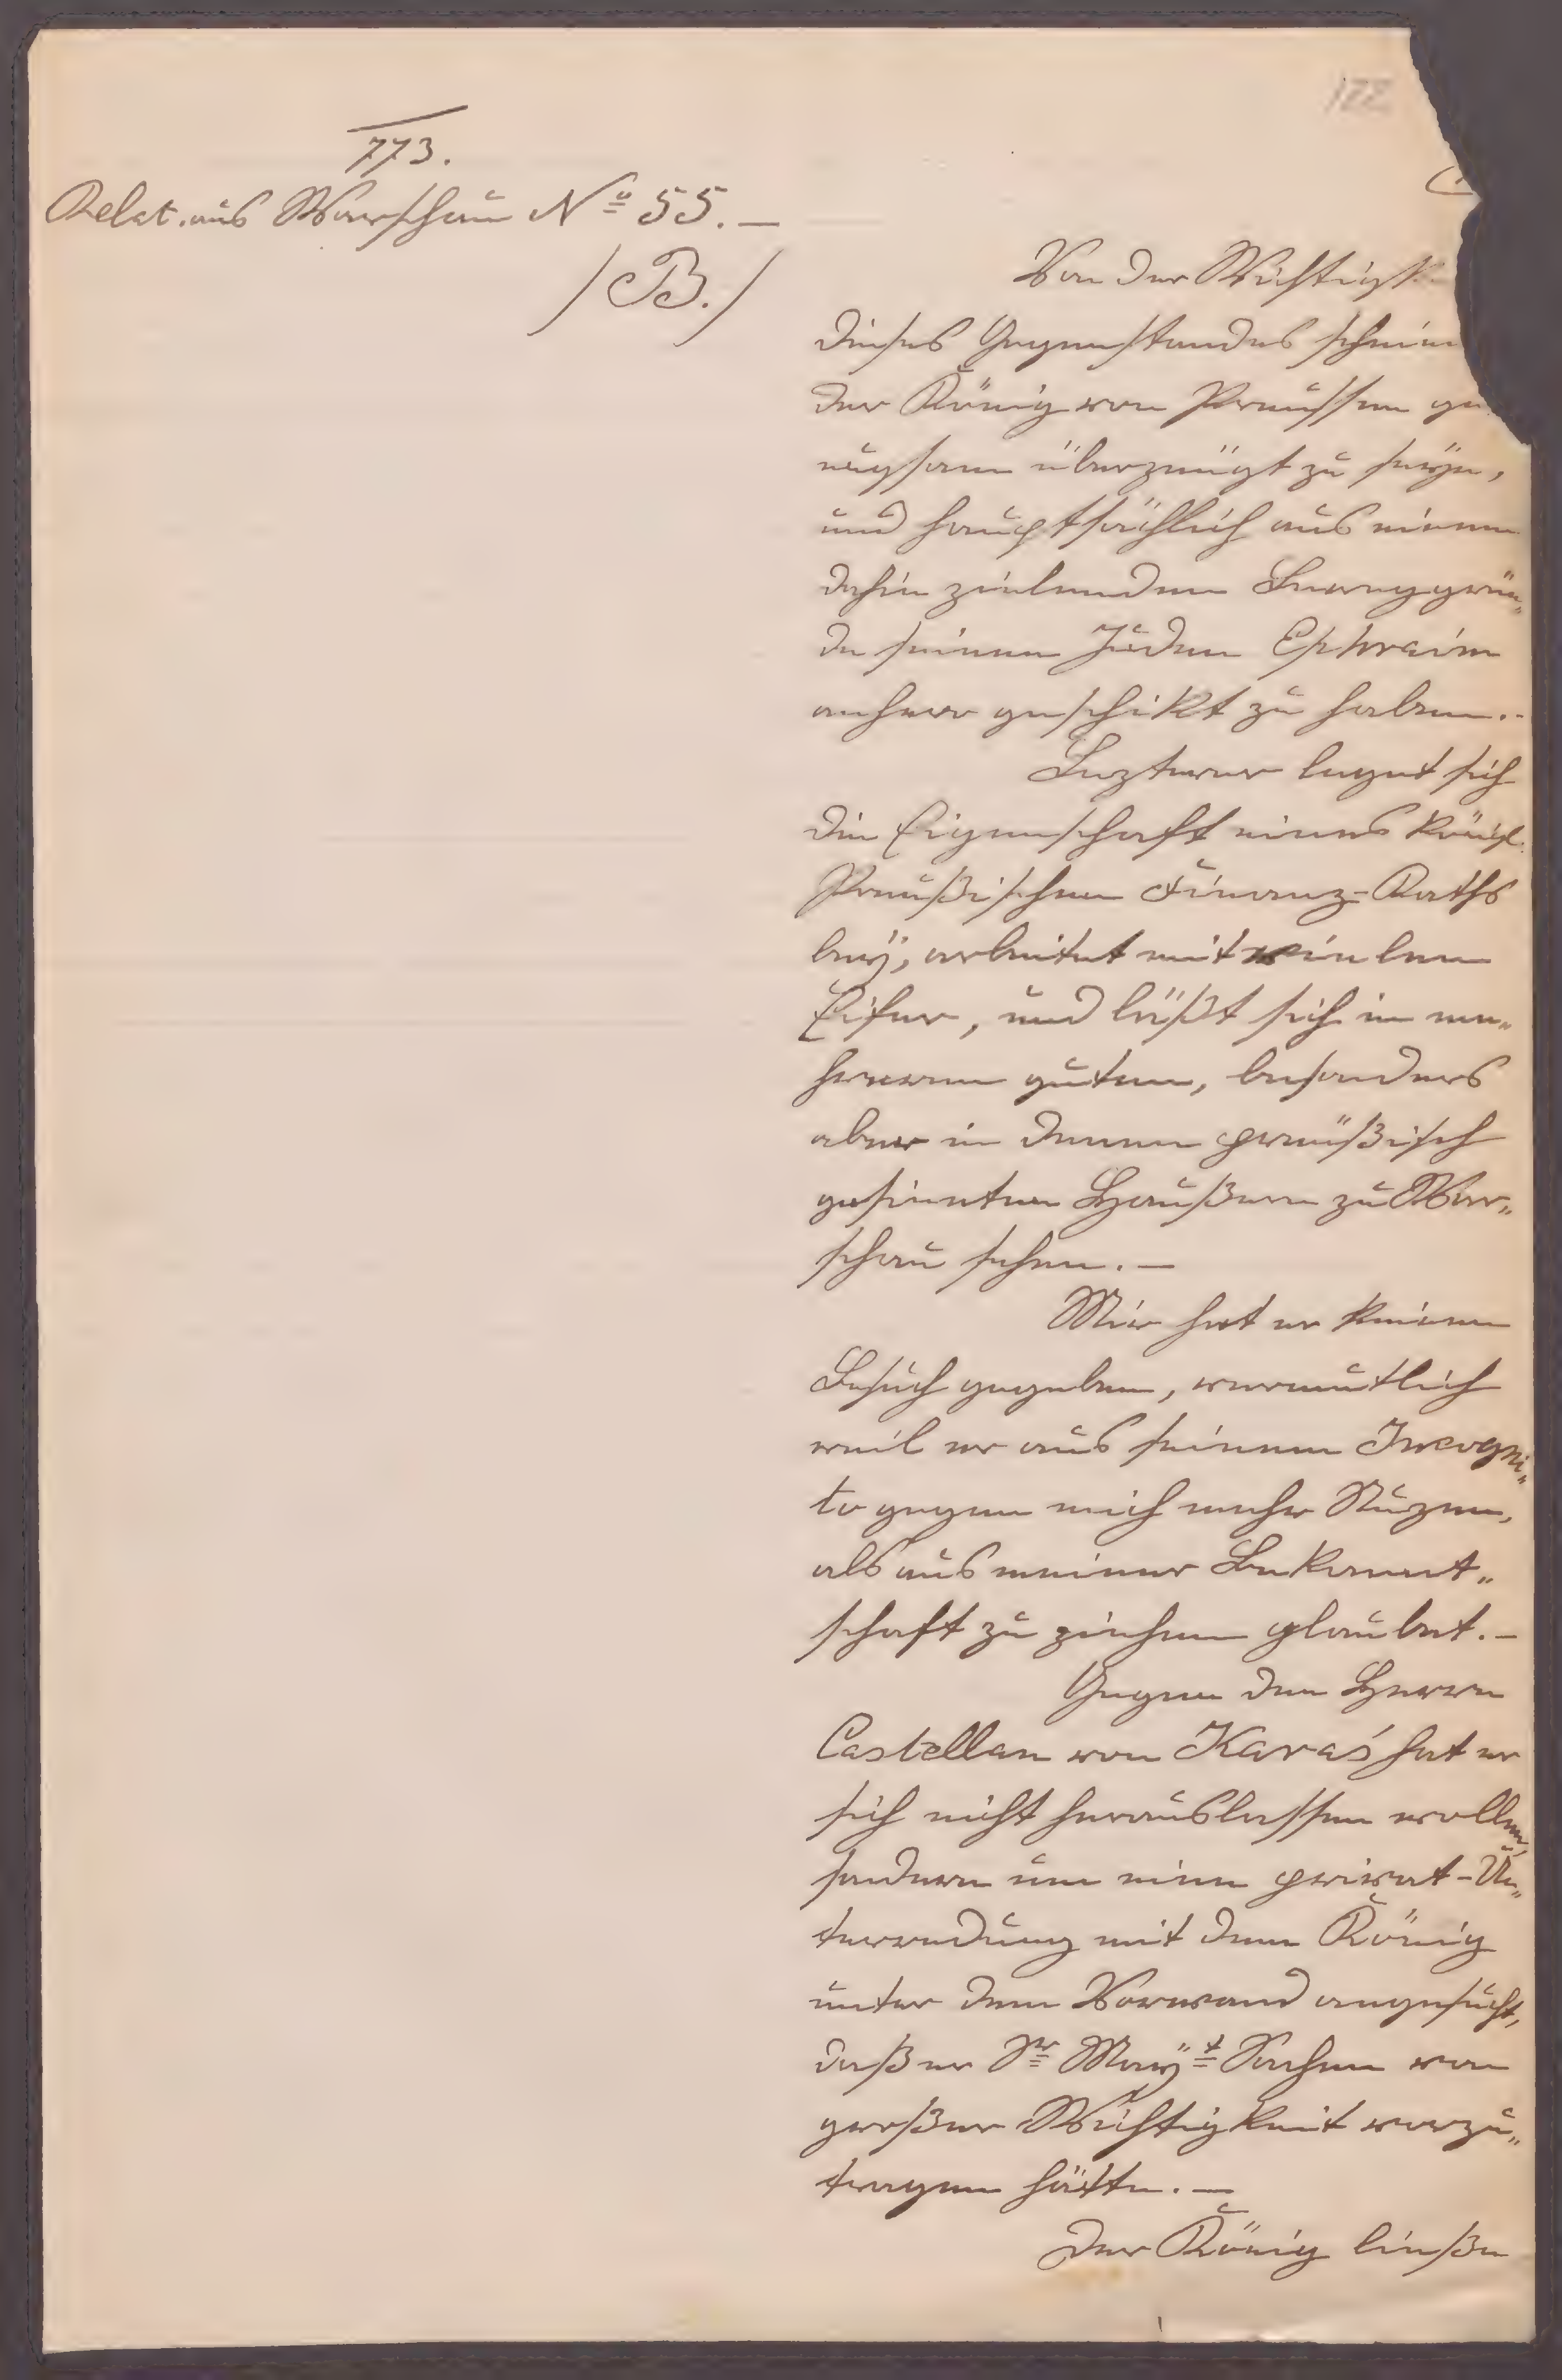 122
773.
Relat. aus Warschau Nº 55. —
/B./
Von der Wichtigk
dieses Gegenstandes schein
der König von Preussen ge
nugsam überzeügt zu seÿn,
und hauptsächlich aus einem
dahin zielenden Beweggrün„
de seinen Juden Ephraim
anhero geschikt zu haben. -
Lezterer leget sich
die Eigenschaft eines königl.
Preußischen Finanz-Raths
beÿ, arbeitet mit vielem
Eifer, und läßt sich in me„
hreren guten, besonders
aber in denen preüßisch
gesinnten Haußern zu War„
schau sehen. —
Mir hat er keinen
Besuch gegeben, vermutlich
weil er aus seinem Incogni„
to gegen mich mehr Nuzen,
als aus meiner Bekannt„
schaft zu ziehen glaubet. —
Gegen den Herrn
Castellan von Karaś hat er
sich nicht herauslassen wollen,
sondern um eine privat-Un„
terredung mit dem König
unter dem Vorwand angesucht,
daß er Sr Maÿt Sachen von
großer Wichtigkeit vorzu„
tragen hätte. —
Der König ließe